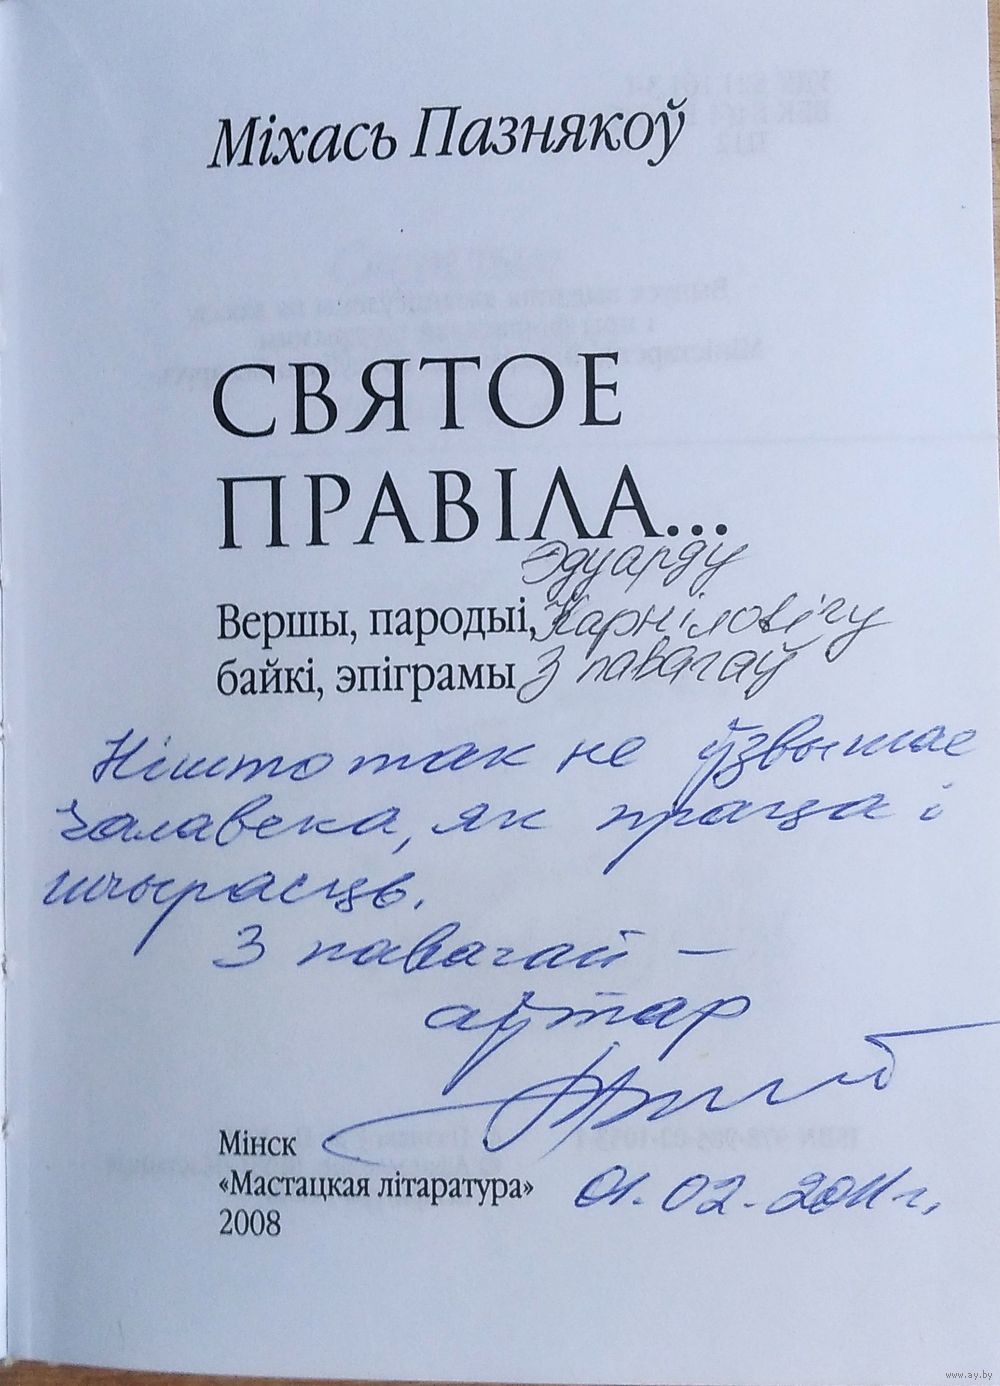 Міхась Пазнякоў
СВЯТОЕ
ПРАВІЛА...
Эдуарду
Вершы, пародыі, Карніловічу
байкі, эпіграмы З павагаў
Нішто так не ўзвышае
чалавека, як праца і
шчырасць.
З павагай –
аўтар
Мінск
«Мастацкая літаратура»
2008
01.02.2011 г.
www.ay.by